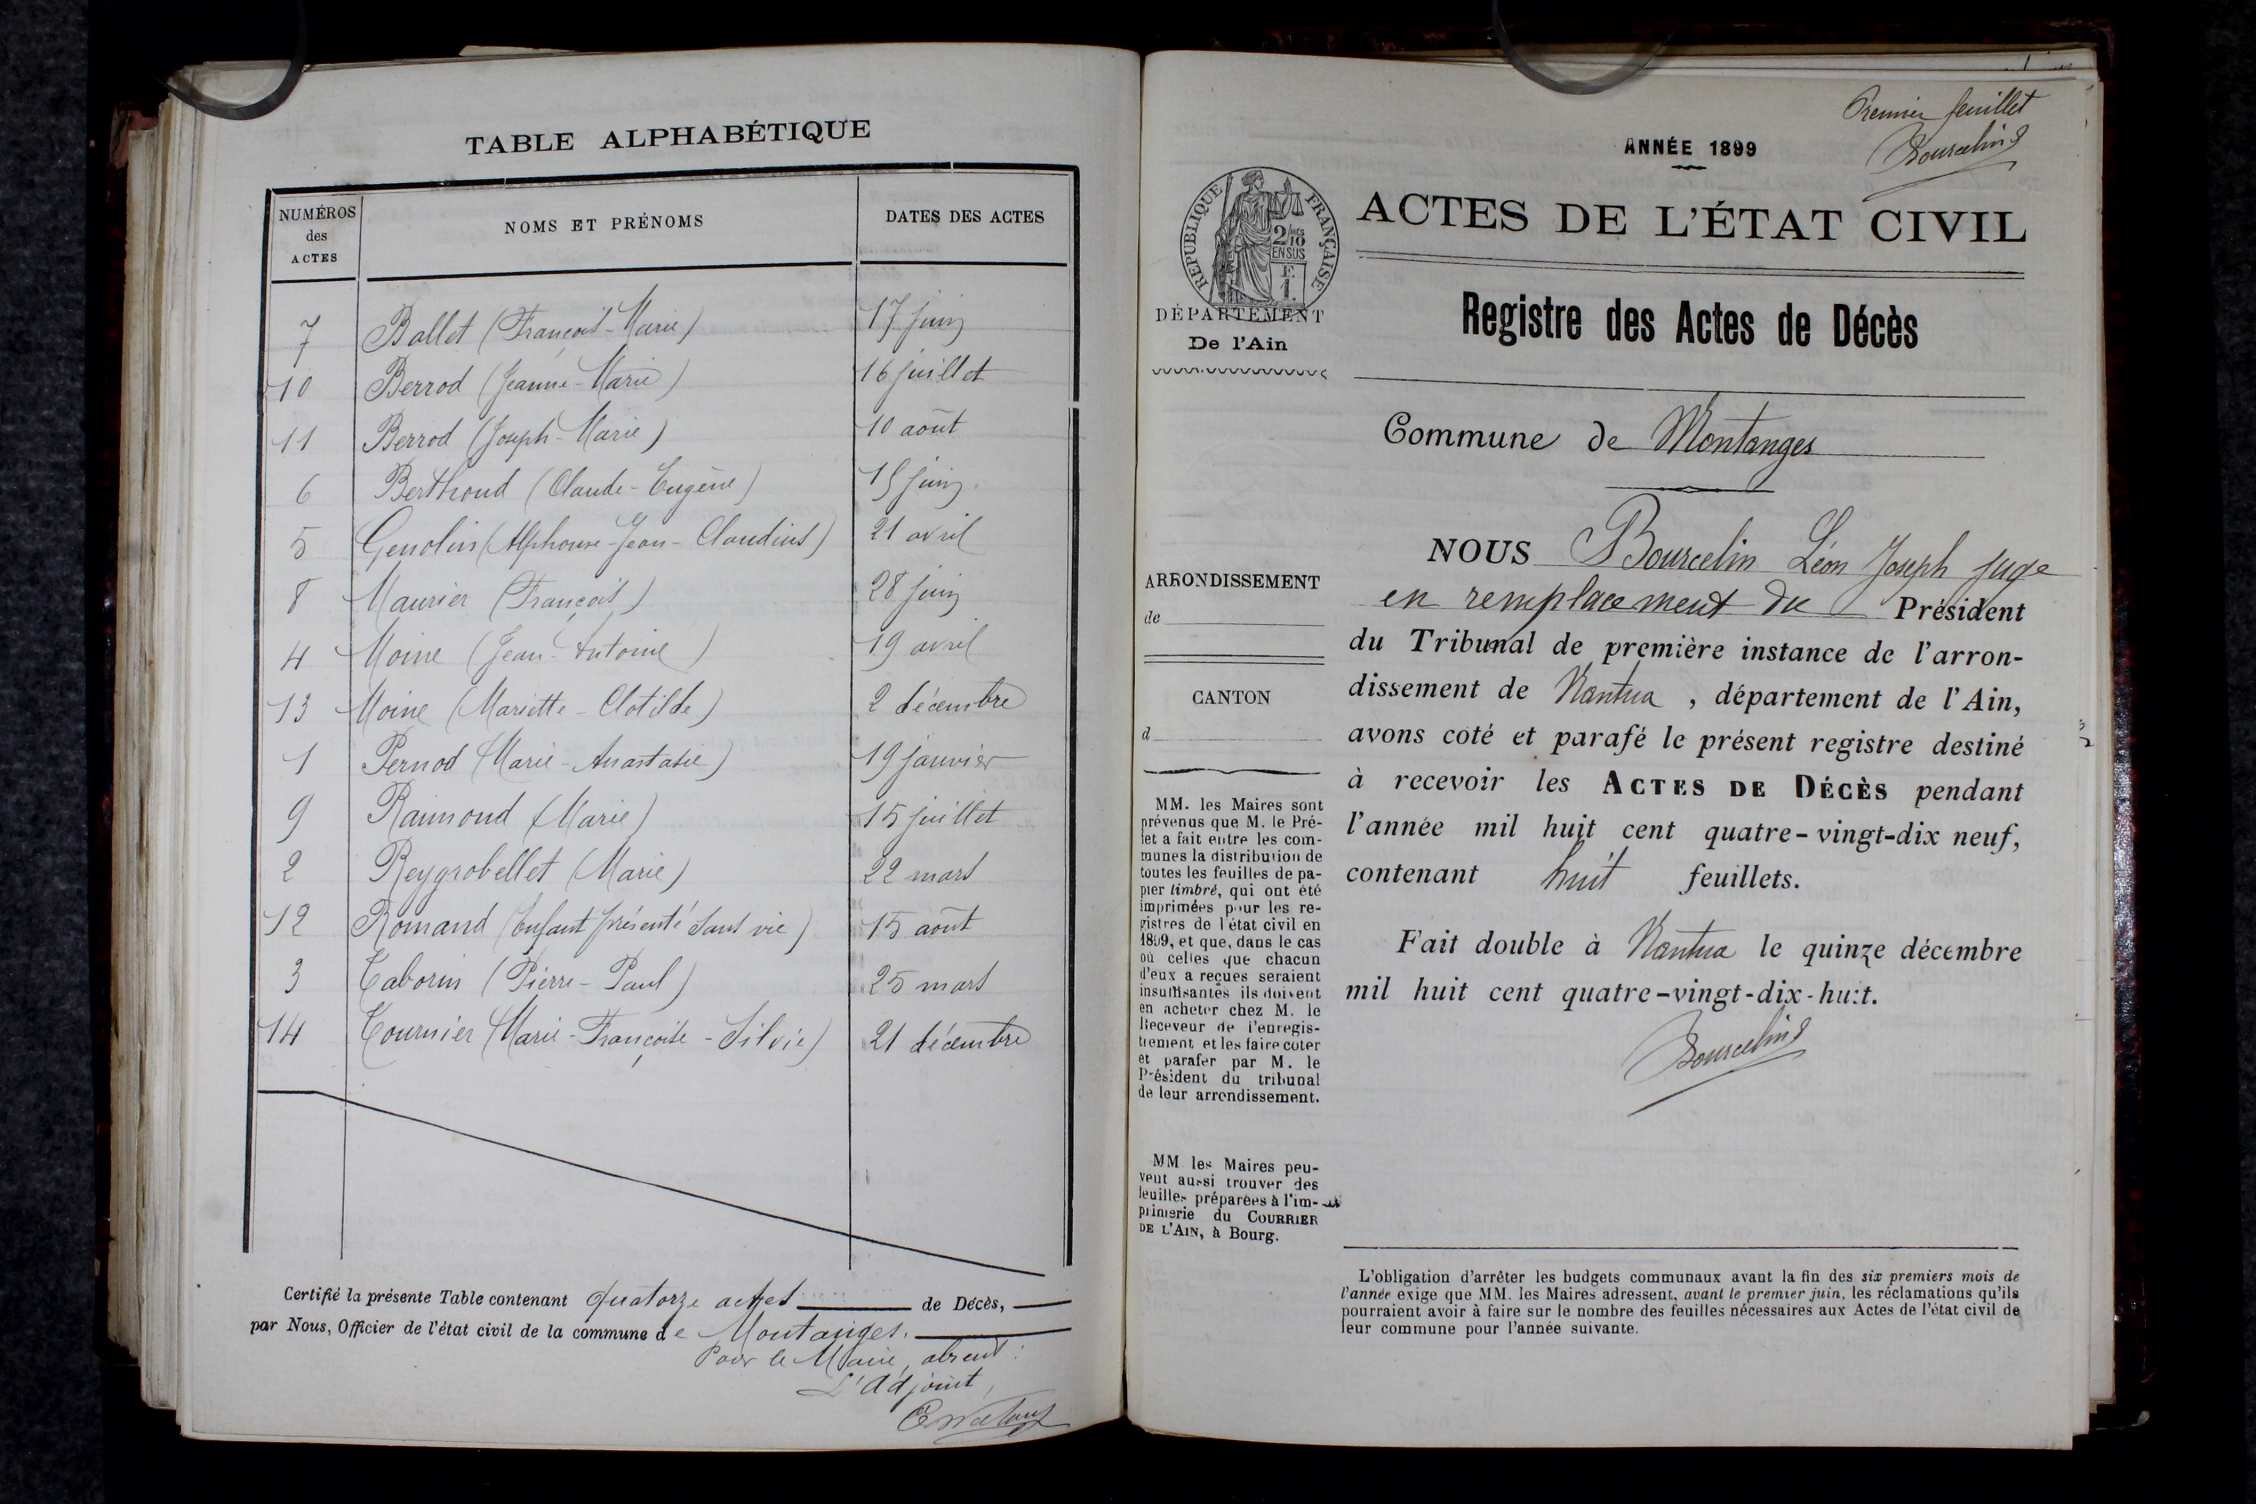 TABLE ALPHABÉTIQUE
NUMÉROS
des
ACTES
NOMS ET PRÉNOMS
DATES DES ACTES
7 Ballet (François-Marie) 17 juin
10 Berrod (Jeanne-Marie) 16 juillet
11 Berrod (Joseph-Marie) 10 août
6 Berthoud (Claude-Eugène) 15 juin
5 Genolin (Alphonse-Jean-Claudius) 21 avril
8 Maurier (François) 28 juin
4 Moine (Jean-Antoine) 19 avril
13 Moine (Mariette-Clotilde) 2 décembre
1 Pernod (Marie-Anastasie) 19 janvier
9 Raimond (Marie) 15 juillet
2 Reygrobellet (Marie) 22 mars
12 Romand (Enfant présenté sans vie) 15 août
3 Taborin (Pierre-Paul) 25 mars
14 Tournier (Marie-Françoise-Silvie) 21 décembre
Certifié la présente Table contenant quatorze actes de Décès,
par Nous, Officier de l'état civil de la commune de Montanges.
Pour le Maire, absent :
L'adjoint,
Premier feuillet
Bourcelin
ANNÉE 1899
RÉPUBLIQUE FRANÇAISE
2/10
EN SUS
F.
1.
ACTES DE L'ÉTAT CIVIL
DÉPARTEMENT
De l'Ain
Registre des Actes de Décès
Commune de Montanges
ARRONDISSEMENT
de
CANTON
d
MM. les Maires sont
prévenus que M. le Pré-
fet a fait entre les com-
munes la distribution de
toutes les feuilles de pa-
pier timbré, qui ont été
imprimées pour les re-
gistres de l'état civil en
1899, et que, dans le cas
où celles que chacun
d'eux a reçues seraient
insuffisantes ils doivent
en acheter chez M. le
Receveur de l'enregis-
trement et les faire coter
et parafer par M. le
Président du tribunal
de leur arrondissement.
MM les Maires peu-
vent aussi trouver des
feuilles préparées à l'im-
primerie du COURRIER
DE L'AIN, à Bourg.
NOUS Bourcelin Léon Joseph juge
en remplacement du Président
du Tribunal de première instance de l'arron-
dissement de Nantua, département de l'Ain,
avons coté et parafé le présent registre destiné
à recevoir les ACTES DE DÉCÈS pendant
l'année mil huit cent quatre-vingt-dix neuf,
contenant huit feuillets.
Fait double à Nantua le quinze décembre
mil huit cent quatre-vingt-dix-huit.
Bourcelin
L'obligation d'arrêter les budgets communaux avant la fin des six premiers mois de
l'année exige que MM. les Maires adressent, avant le premier juin, les réclamations qu'ils
pourraient avoir à faire sur le nombre des feuilles nécessaires aux Actes de l'état civil de
leur commune pour l'année suivante.